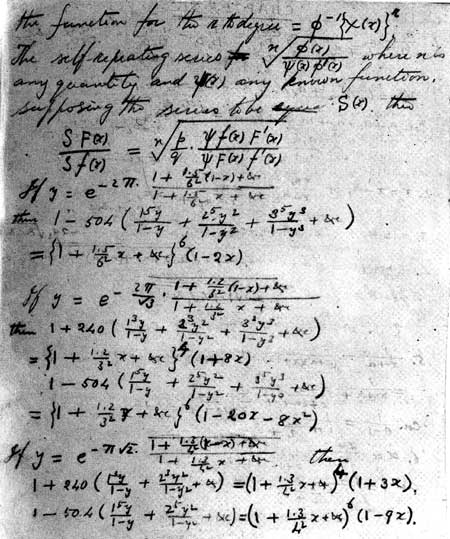 the function for the nth degree = φ⁻¹{χ(x)}ⁿ
The self repeating series ⁿ√(φ(x) / ψ(x) φ'(x)) where n is
any quantity and ψ(x) any known function.
supposing the series to be S(x). then
S F(x) / S f(x) = ⁿ√(p/q · ψ f(x) F'(x) / ψ F(x) f'(x))
If y = e^{-2π · (1 + (1·5/6²)(1-x) + &c) / (1 + (1·5/6²) x + &c)}
then 1 - 504 (1⁵y/(1-y) + 2⁵y²/(1-y²) + 3⁵y³/(1-y³) + &c)
= {1 + (1·5/6²) x + &c}⁶ (1-2x)
If y = e^{-(2π/√3) · (1 + (1·2/3²)(1-x) + &c) / (1 + (1·2/3²) x + &c)}
then 1 + 240 (1³y/(1-y) + 2³y²/(1-y²) + 3³y³/(1-y³) + &c)
= {1 + (1·2/3²) x + &c}⁴ (1+8x)
1 - 504 (1⁵y/(1-y) + 2⁵y²/(1-y²) + 3⁵y³/(1-y³) + &c)
= {1 + (1·2/3²) x + &c}⁶ (1 - 20x - 8x²)
If y = e^{-π√2 · (1 + (1·3/4²)(1-x) + &c) / (1 + (1·3/4²) x + &c)} then
1 + 240 (1³y/(1-y) + 2³y²/(1-y²) + &c) = (1 + (1·3/4²) x + &c)⁴ (1+3x).
1 - 504 (1⁵y/(1-y) + 2⁵y²/(1-y²) + &c) = (1 + (1·3/4²) x + &c)⁶ (1-9x).